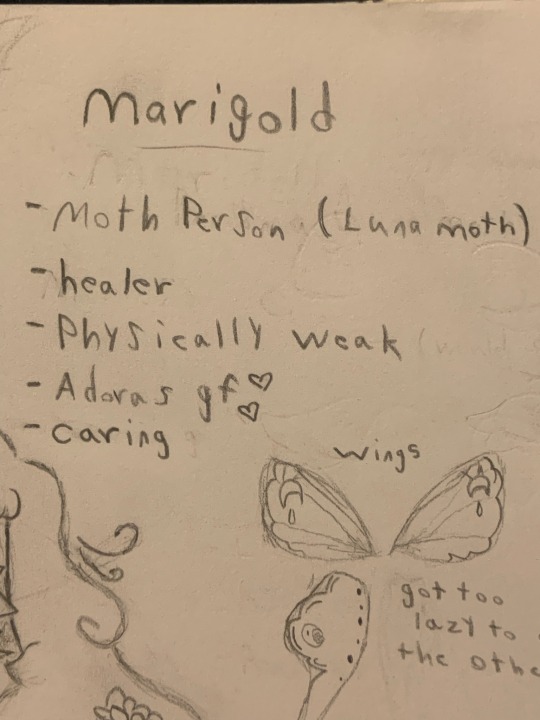 Marigold
- Moth Person (Luna moth)
- healer
- Physically weak
- Adoras gf ♡♡
- caring
wings
got too
lazy to
the othe